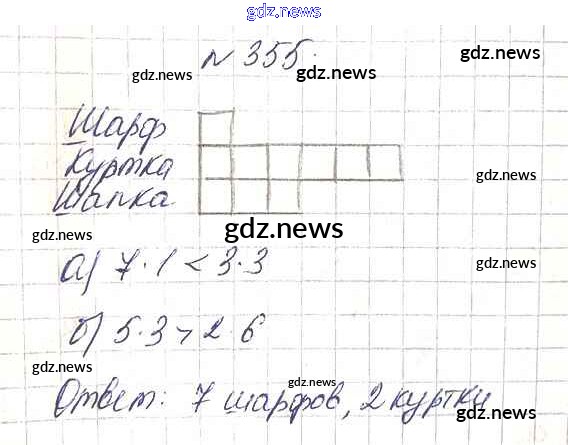 gdz.news
№ 355.
gdz.news
gdz.news gdz.news
Шарф
Куртка
gdz.news
Шапка
gdz.news
gdz.news
а) 7·1 < 3·3
gdz.news
б) 5·3 > 2·6
gdz.news
gdz.news
Ответ: 7 шарфов, 2 куртки
gdz.news